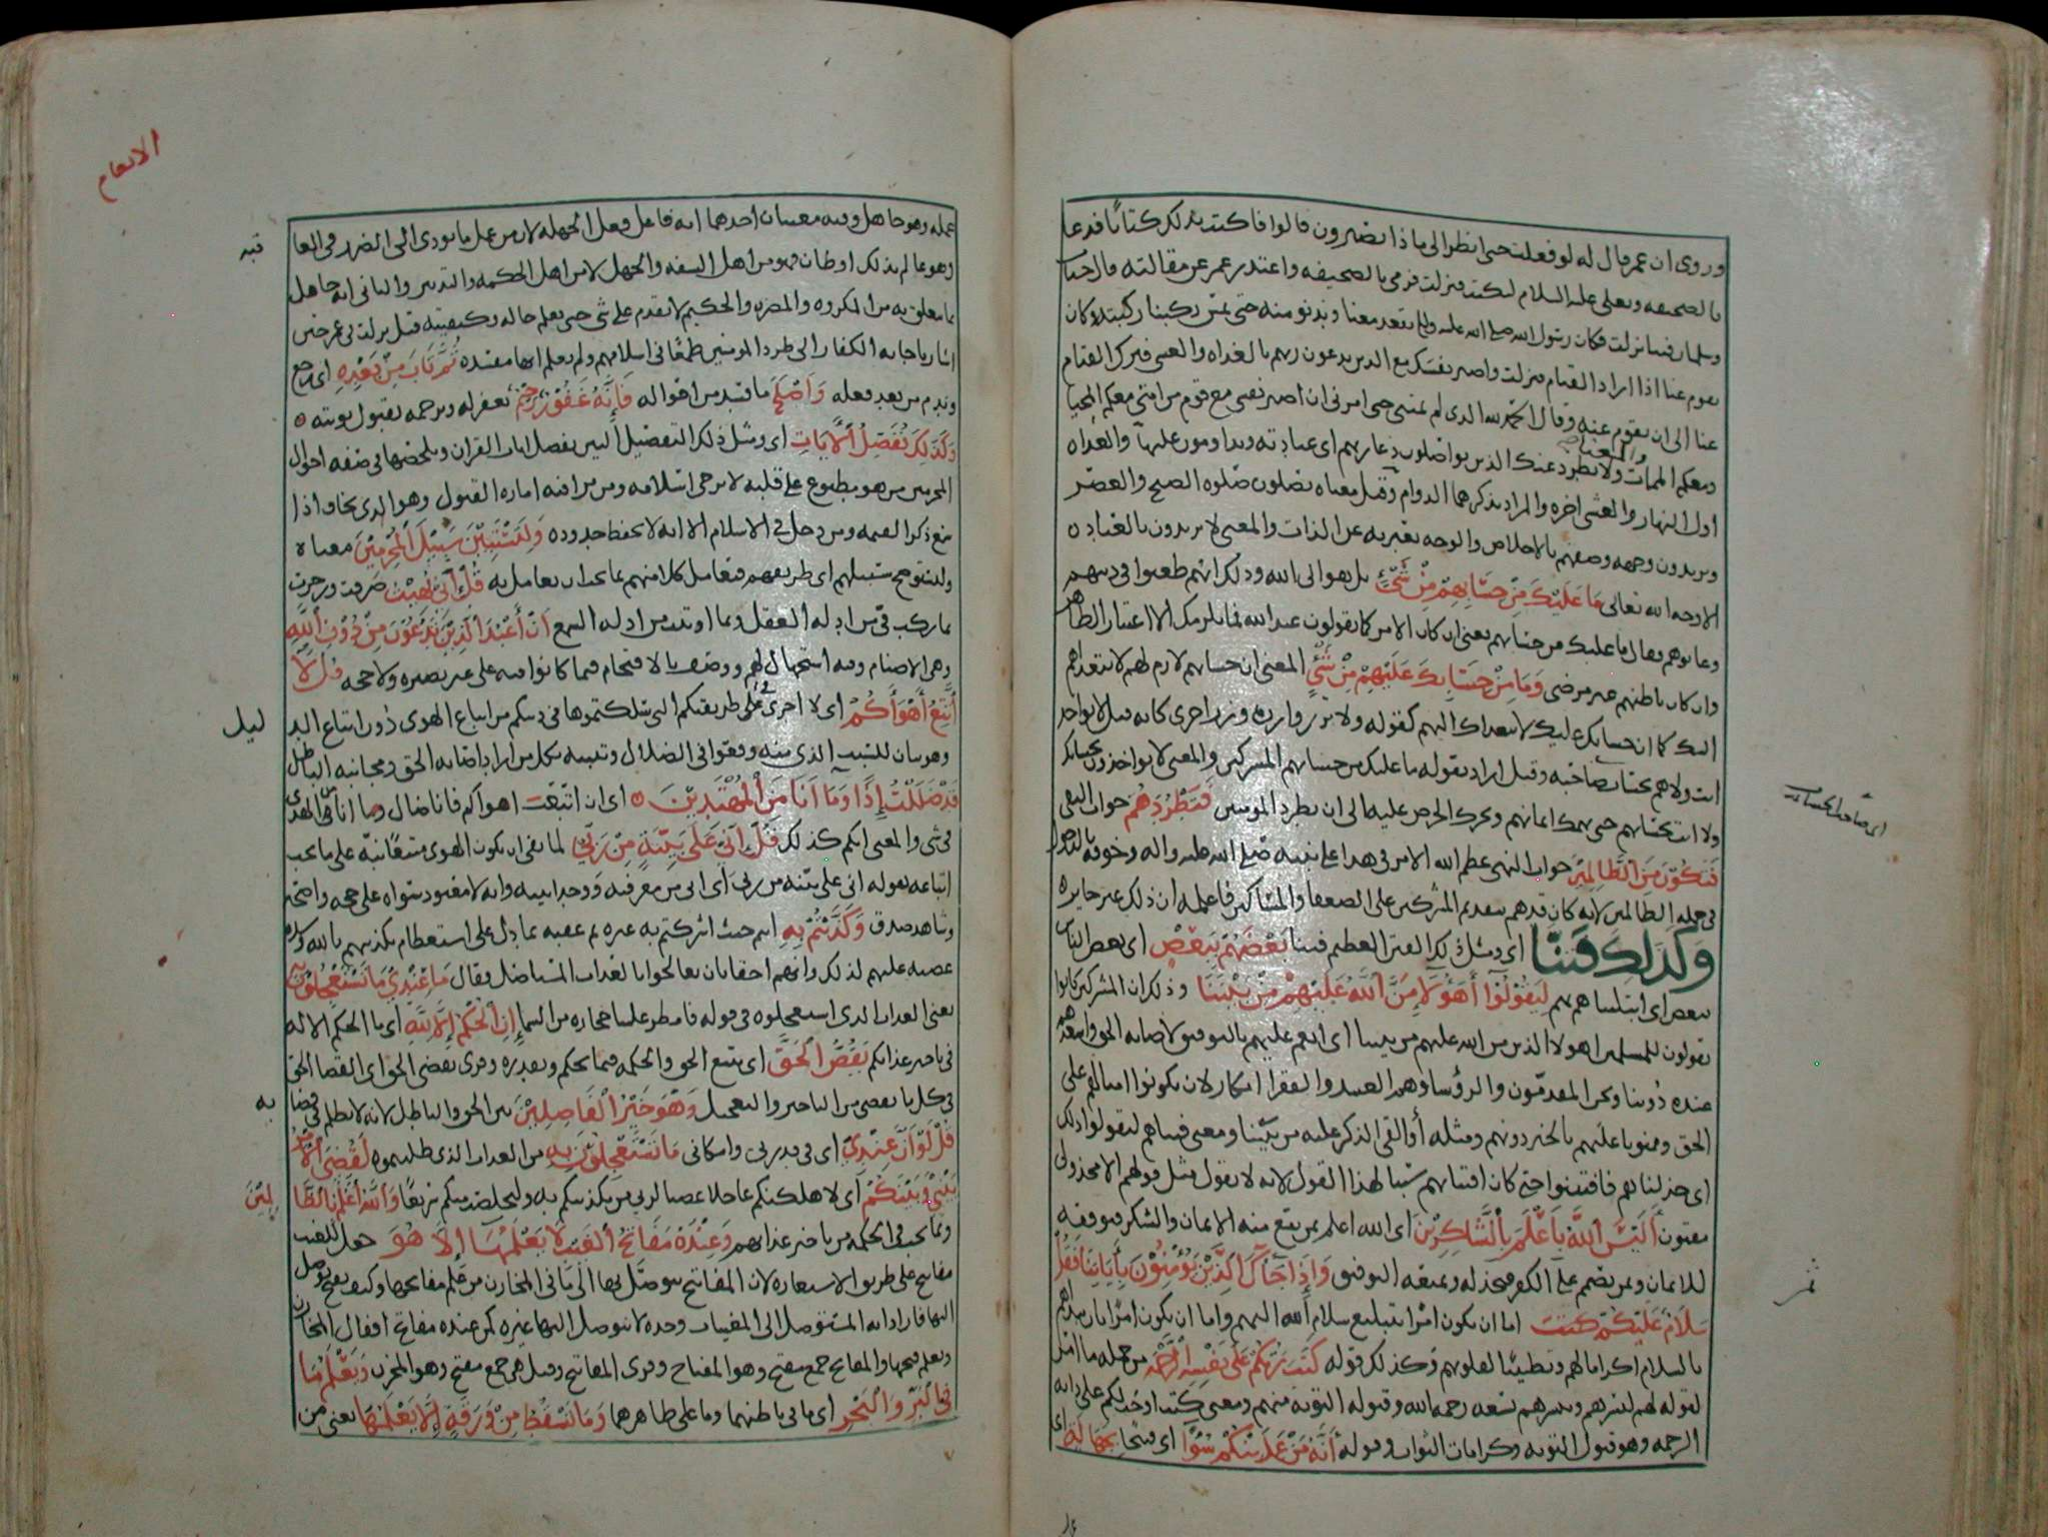 وروى ان عمر قال له لو فعلت حتى ننظر الى ماذا يصيرون قالوا فاكتب بذلك كتابا فدعا
بالصحيفه وبعلي عليه السلام ليكتب فنزلت فرمى بالصحيفه واعتذر عمر عن مقالته قال
نزلت فكان رسول الله صلى الله عليه يقعد معنا ويدنو منه حتى تمس ركبنا ركبته وكان
يقوم عنا اذا اراد القيام فنزلت واصبر نفسك مع الدين يدعون ربهم بالغداه والعشي فترك القيام
عنا الى ان نقوم عنه وقال الحمد لله الدى لم يمتني حتى امرني ان اصبر نفسي مع قوم من امتي معكم المحيا
ومعكم الممات ولا تطرد عنك الذين يواصلون دعا ربهم اى عبادته ويداومون عليها والغداه
اول النهار والعشي اخره والمراد بذكرهما الدوام وقيل معناه يصلون صلوه الصبح والعصر
ويريدون وجهه وصفهم بالاخلاص والوجه يعبر به عن الذات والمعنى لا يريدون بالعباده
الا وجه الله تعالى مَا عَلَيْكَ مِنْ حِسَابِهِمْ مِنْ شَيْءٍ بل هو الى الله وذلك انهم طعنوا في دينهم
فقال ما عليك من حسابهم يعني ان كان الامر كما يقولون عند الله فما يلزمك الا اعتبار الظاهر
وان كان باطنهم غير مرضي وَمَا مِنْ حِسَابِكَ عَلَيْهِمْ مِنْ شَيْءٍ المعنى ان حسابهم لازم لهم لا يتعداهم
اليك كما ان حسابك عليك لا يتعداك اليهم كقوله ولا تزر وازرة وزر اخرى كانه قيل لا تواخذ
انت ولا هم بحساب صاحبه وقيل اراد بقوله ما عليك من حسابهم المشركين والمعنى لا يواخذون بحسابك
ولا انت بحسابهم حتى يهمك ايمانهم ويحرك الحرص عليه الى ان تطرد المومنين فَتَطْرُدَهُمْ جواب النفي
فَتَكُونَ مِنَ الظَّالِمِينَ جواب النهي عظم الله الامر في هدا على نبيه صلى الله عليه واله وخوفه
في جمله الظالمين لانه كان قدهم بتقديم المشركين على الضعفا والمساكين فاعلمه ان ذلك غير جايز
وَكَذَلِكَ فَتَنَّا اى ومثل ذلك الفتن العظيم فتنا بَعْضَهُمْ بِبَعْضٍ اى بعض الناس
ببعض اى ابتليناهم بهم لِيَقُولُوا أَهَؤُلَاءِ مَنَّ اللَّهُ عَلَيْهِمْ مِنْ بَيْنِنَا وذلك ان المشركين كانوا
يقولون للمسلمين اهولا الذين من الله عليهم من بيننا اى انعم عليهم بالتوفيق لاصابه الحق
عنده دوننا ونحن المقدمون والرؤسا وهم العبيد والفقرا انكار لان يكونوا امثالهم على
الحق وممنونا عليهم بالخير دونهم ومثله أألقي الذكر عليه من بيننا ومعنى فتناهم ليقولوا ذلك
اى خذلناهم فافتتنوا حتى كان افتتانهم سببا لهذا القول لانه لا يقول مثل قولهم الا مخذول
مفتون أَلَيْسَ اللَّهُ بِأَعْلَمَ بِالشَّاكِرِينَ اى الله اعلم بمن يقع منه الايمان والشكر فيوفقه
للايمان وبمن يصمم على الكفر فيخذله ويمنعه التوفيق وَإِذَا جَاءَكَ الَّذِينَ يُؤْمِنُونَ بِآيَاتِنَا فَقُلْ
سَلَامٌ عَلَيْكُمْ كَتَبَ اما ان يكون امرا بتبليغ سلام الله اليهم واما ان يكون امرا بان يبداهم
بالسلام اكراما لهم وتطييبا لقلوبهم وكذلك قوله كَتَبَ رَبُّكُمْ عَلَى نَفْسِهِ الرَّحْمَةَ من جمله ما
يقوله لهم ليسرهم ويبشرهم بسعه رحمه الله وقبوله التوبه منهم ومعنى كتب اوجبها لكم على ذاته
الرحمه وهو قبول التوبه وكرامات الثواب وقوله أَنَّهُ مَنْ عَمِلَ مِنْكُمْ سُوءًا اى قبيحا بِجَهَالَةٍ اى
الانعام
عمله وهو جاهل وفيه معنيان احدهما انه فاعل فعل الجهله لان من عمل ما يودي الى الضرر في العا
قبه
وهو عالم بذلك او ظان فهو من اهل السفه والجهل لا من اهل الحكمه والتدبير والثاني انه جاهل
بما يتعلق به من المكروه والمضره والحكيم لا يقدم على شي حتى يعلم حاله وكيفيته قيل نزلت في عمر حين
اشار باجابه الكفار الى طرد المومنين طمعا في اسلامهم ولم يعلم انها مفسده ثُمَّ تَابَ مِنْ بَعْدِهِ اى رجع
وندم من بعد فعله وَأَصْلَحَ ما فسد من افعاله فَإِنَّهُ غَفُورٌ رَحِيمٌ يغفر له ويرحمه بقبول توبته
وَكَذَلِكَ نُفَصِّلُ الْآيَاتِ اى ومثل ذلك التفصيل البين نفصل ايات القران ونلخصها في صفه احوال
المجرمين من هو مطبوع على قلبه لا يرجى اسلامه ومن يرى فيه اماره القبول وهو الدى يخاف اذا
سمع ذكر القيمه ومن دخل في الاسلام الا انه لا يحفظ حدوده وَلِتَسْتَبِينَ سَبِيلَ الْمُجْرِمِينَ معناه
ولتستوضح سبيلهم اى طريقهم فتعامل كلا منهم بما يجب ان يعامل به قُلْ إِنِّي نُهِيتُ صرفت وزجرت
بما ركب في من ادله العقل وبما اوتيت من ادله السمع أَنْ أَعْبُدَ الَّذِينَ تَدْعُونَ مِنْ دُونِ اللَّهِ
وهي الاصنام وفيه استجهال لهم ووصف بالاقتحام فيما كانوا فيه على غير بصيره ولا حجه قُلْ لَا
أَتَّبِعُ أَهْوَاءَكُمْ اى لا اجرى على طريقتكم التي سلكتموها في دينكم من اتباع الهوى دون اتباع الد
ليل
وهو بيان للسبب الذي منه وقعوا في الضلال وتنبيه لكل من اراد اصابه الحق ومجانبه الباطل
قَدْ ضَلَلْتُ إِذًا وَمَا أَنَا مِنَ الْمُهْتَدِينَ اى ان اتبعت اهواكم فانا ضال وما انا من الهدى
في شي والمعنى انكم كذلك قُلْ إِنِّي عَلَى بَيِّنَةٍ مِنْ رَبِّي لما نفى ان يكون الهوى متبعا نبه على ما يجب
اتباعه بقوله اني على بينه من ربي اى اني من معرفته ووحدانيته وانه لا معبود سواه على حجه واضحه
وشاهد صدق وَكَذَّبْتُمْ بِهِ انتم حيث اشركتم به غيره ثم عقبه بما دل على استعظام تكذيبهم بالله وشده
غضبه عليهم لذلك وانهم احقا بان يعالجوا بالعذاب المستاصل فقال مَا عِنْدِي مَا تَسْتَعْجِلُونَ بِهِ
يعني العذاب الدى استعجلوه في قوله فامطر علينا حجاره من السما إِنِ الْحُكْمُ إِلَّا لِلَّهِ اى ما الحكم الا لله
في تاخير عذابكم يَقُصُّ الْحَقَّ اى يتبع الحق والحكمه فيما يحكم ويقدره وقرى يقضي الحق اى القضا الحق
في كل ما يقضي من التاخير والتعجيل وَهُوَ خَيْرُ الْفَاصِلِينَ بين الحق والباطل لانه لا يظلم في قضا
يه
قُلْ لَوْ أَنَّ عِنْدِي اى في قدرتي وامكاني مَا تَسْتَعْجِلُونَ بِهِ من العذاب الذى طلبتموه لَقُضِيَ الْأَمْرُ
بَيْنِي وَبَيْنَكُمْ اى لاهلكتكم عاجلا غضبا لربي من تكذيبكم به ولتخلصت منكم سريعا وَاللَّهُ أَعْلَمُ بِالظَّا
لِمِينَ
وبما يجب في الحكمه من تاخير عذابهم وَعِنْدَهُ مَفَاتِحُ الْغَيْبِ لَا يَعْلَمُهَا إِلَّا هُوَ جعل للغيب
مفاتح على طريق الاستعاره لان المفاتح يتوصل بها الى ما في المخازن من علم مفاتحها وكيف يفتح توصل
اليها فاراد انه المتوصل الى المغيبات وحده لا يتوصل اليها غيره كمن عنده مفاتح اقفال المخازن
ويعلم فتحها والمفاتح جمع مفتح وهو المفتاح وقرى المفاتيح وقيل هي جمع مفتح وهو المخزن وَيَعْلَمُ مَا
فِي الْبَرِّ وَالْبَحْرِ اى ما في باطنهما وما على ظاهرهما وَمَا تَسْقُطُ مِنْ وَرَقَةٍ إِلَّا يَعْلَمُهَا يعني من